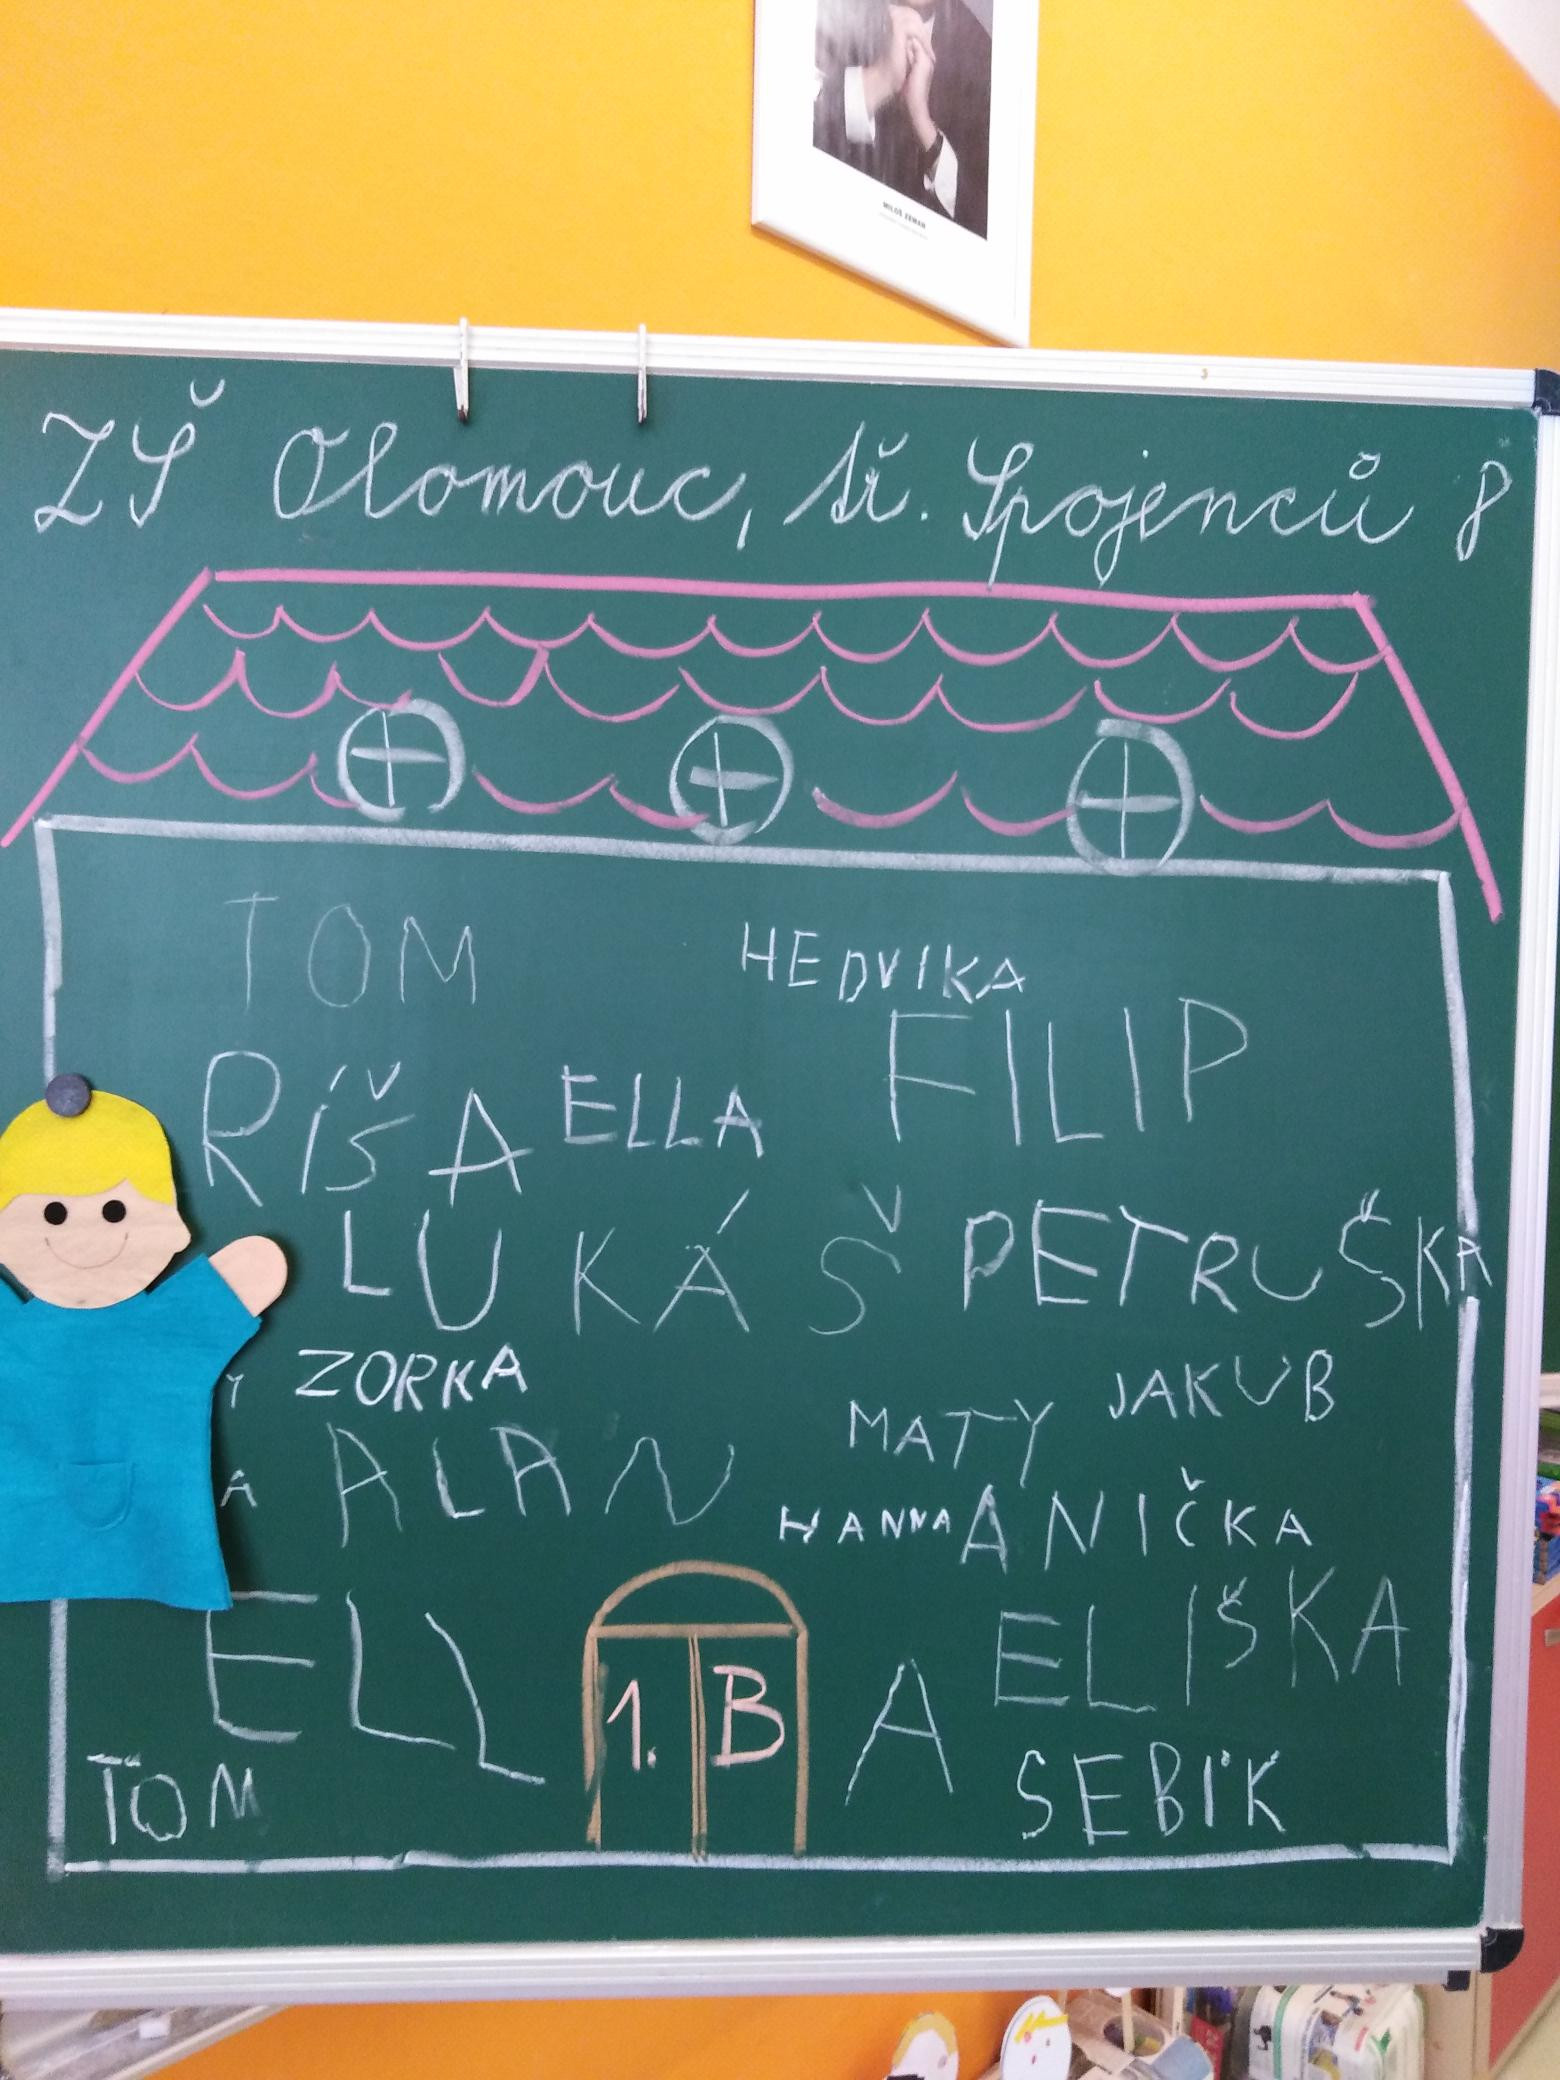 MILOŠ ZEMAN
ZŠ Olomouc, tř. Spojenců 8
TOM
HEDVIKA
RÍŠA
ELLA
FILIP
LUKÁŠ
PETRUŠKA
Y
ZORKA
MATY
JAKUB
A
ALAN
HANNA
ANIČKA
ELL
A
ELIŠKA
1. B
TOM
SEBIK